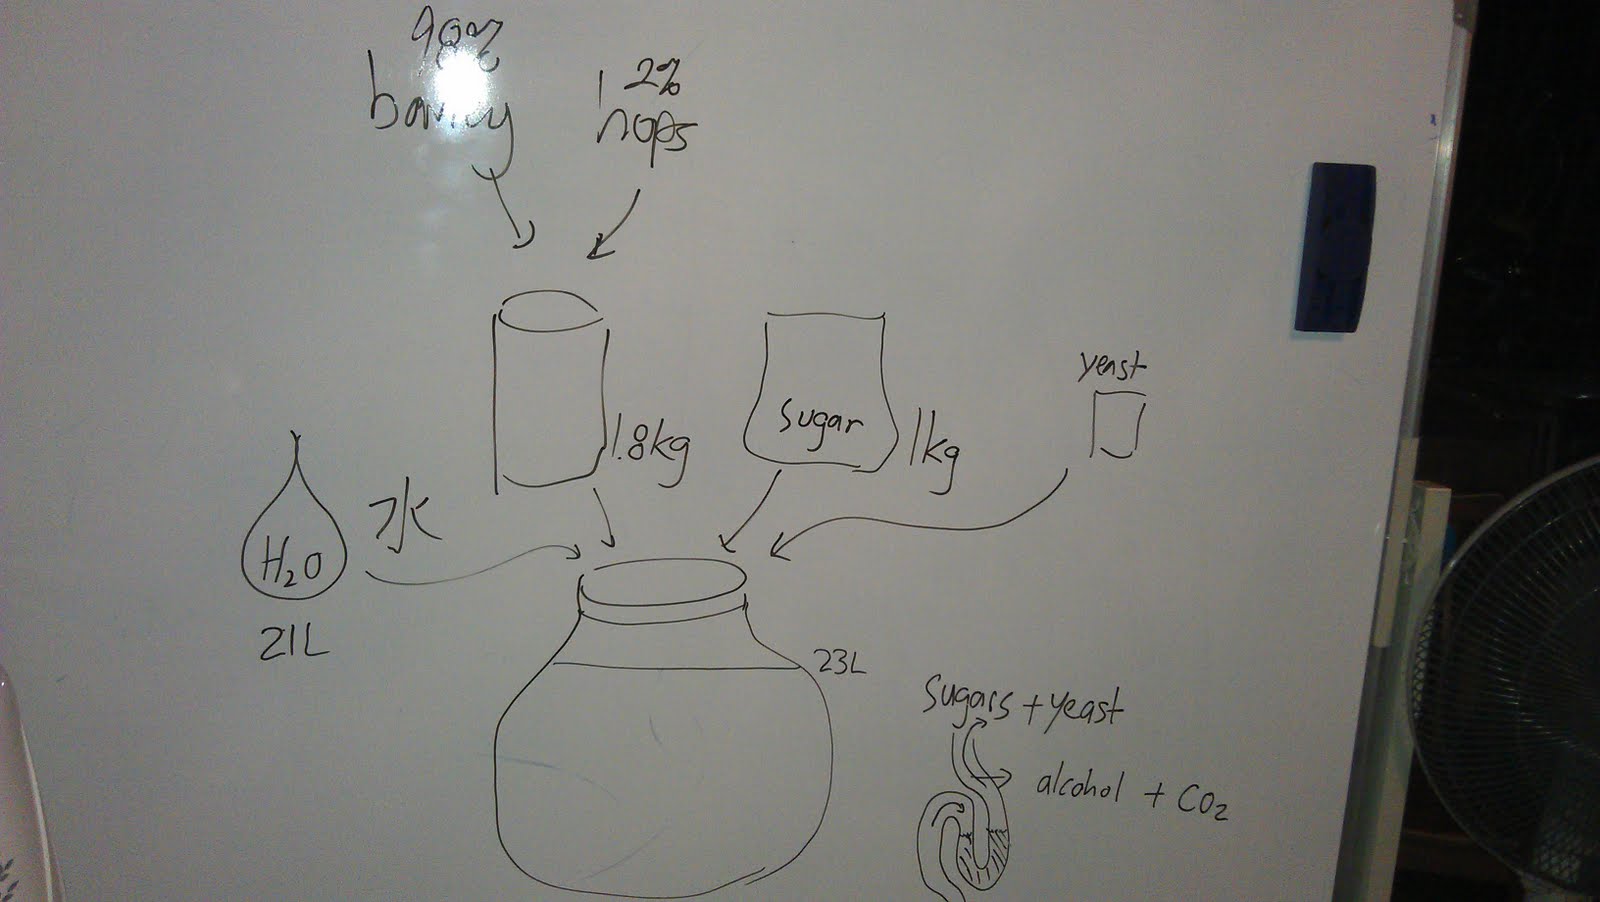 90%
2%
hops
1.8kg
sugar
1kg
yeast
水
H₂O
21L
23L
sugars + yeast
alcohol + CO₂